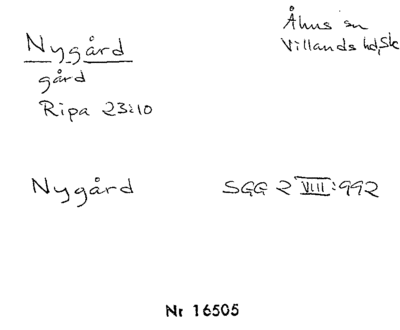 Nygård
gård
Ripa 23:10
Åhus sn
Villands hd, Sk
Nygård
SGG 2 VIII:992
Nr 16505